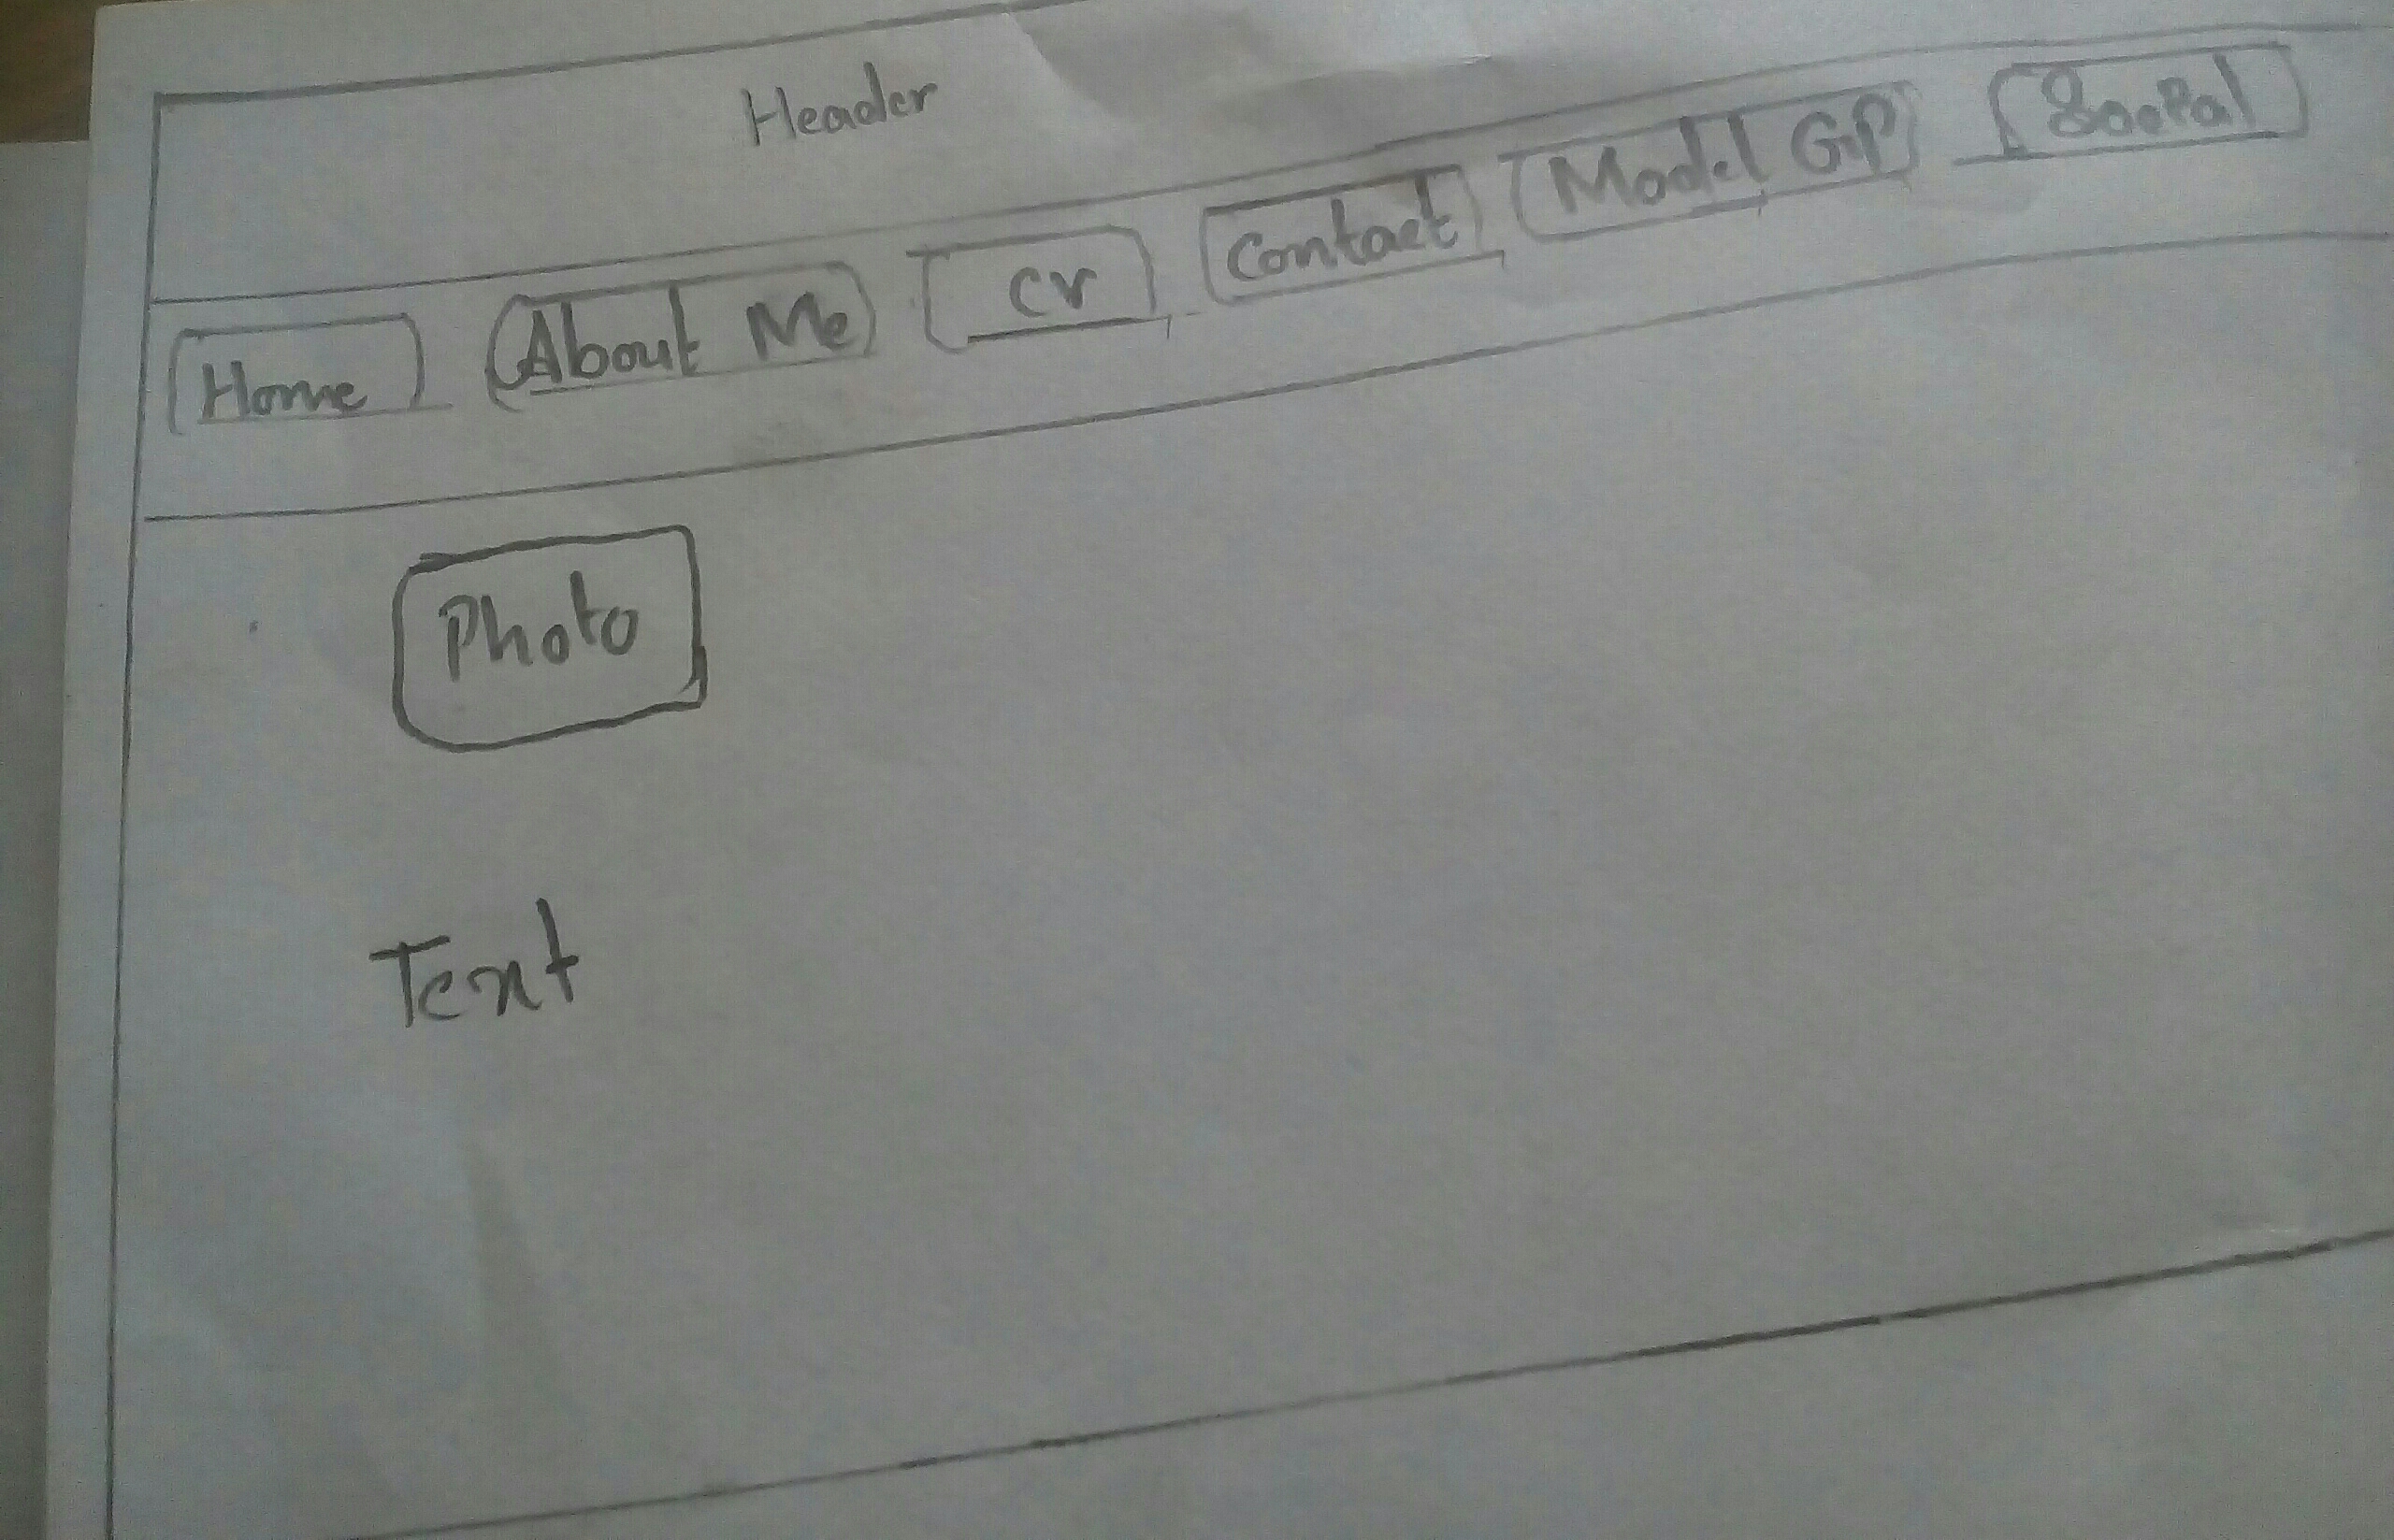 Header
Home About Me CV Contact Model GP Social
Photo
Text